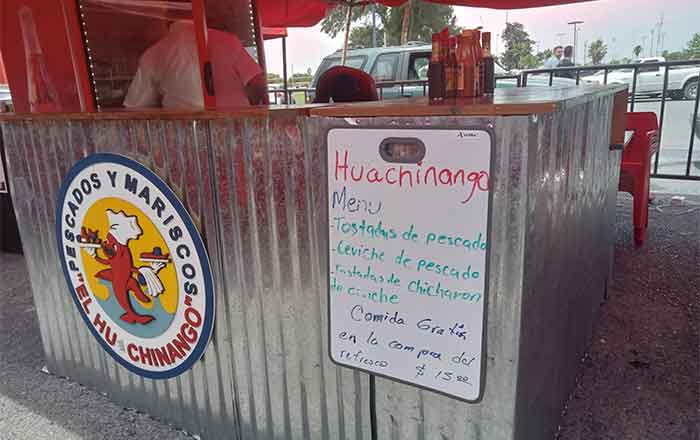 PESCADOS Y MARISCOS
"EL HUACHINANGO"
Huachinango
Menu
-Tostadas de pescado
-Ceviche de pescado
-Tostadas de Chicharon
de ceviche
Comida Gratis
en la compra del
refresco $ 15.00